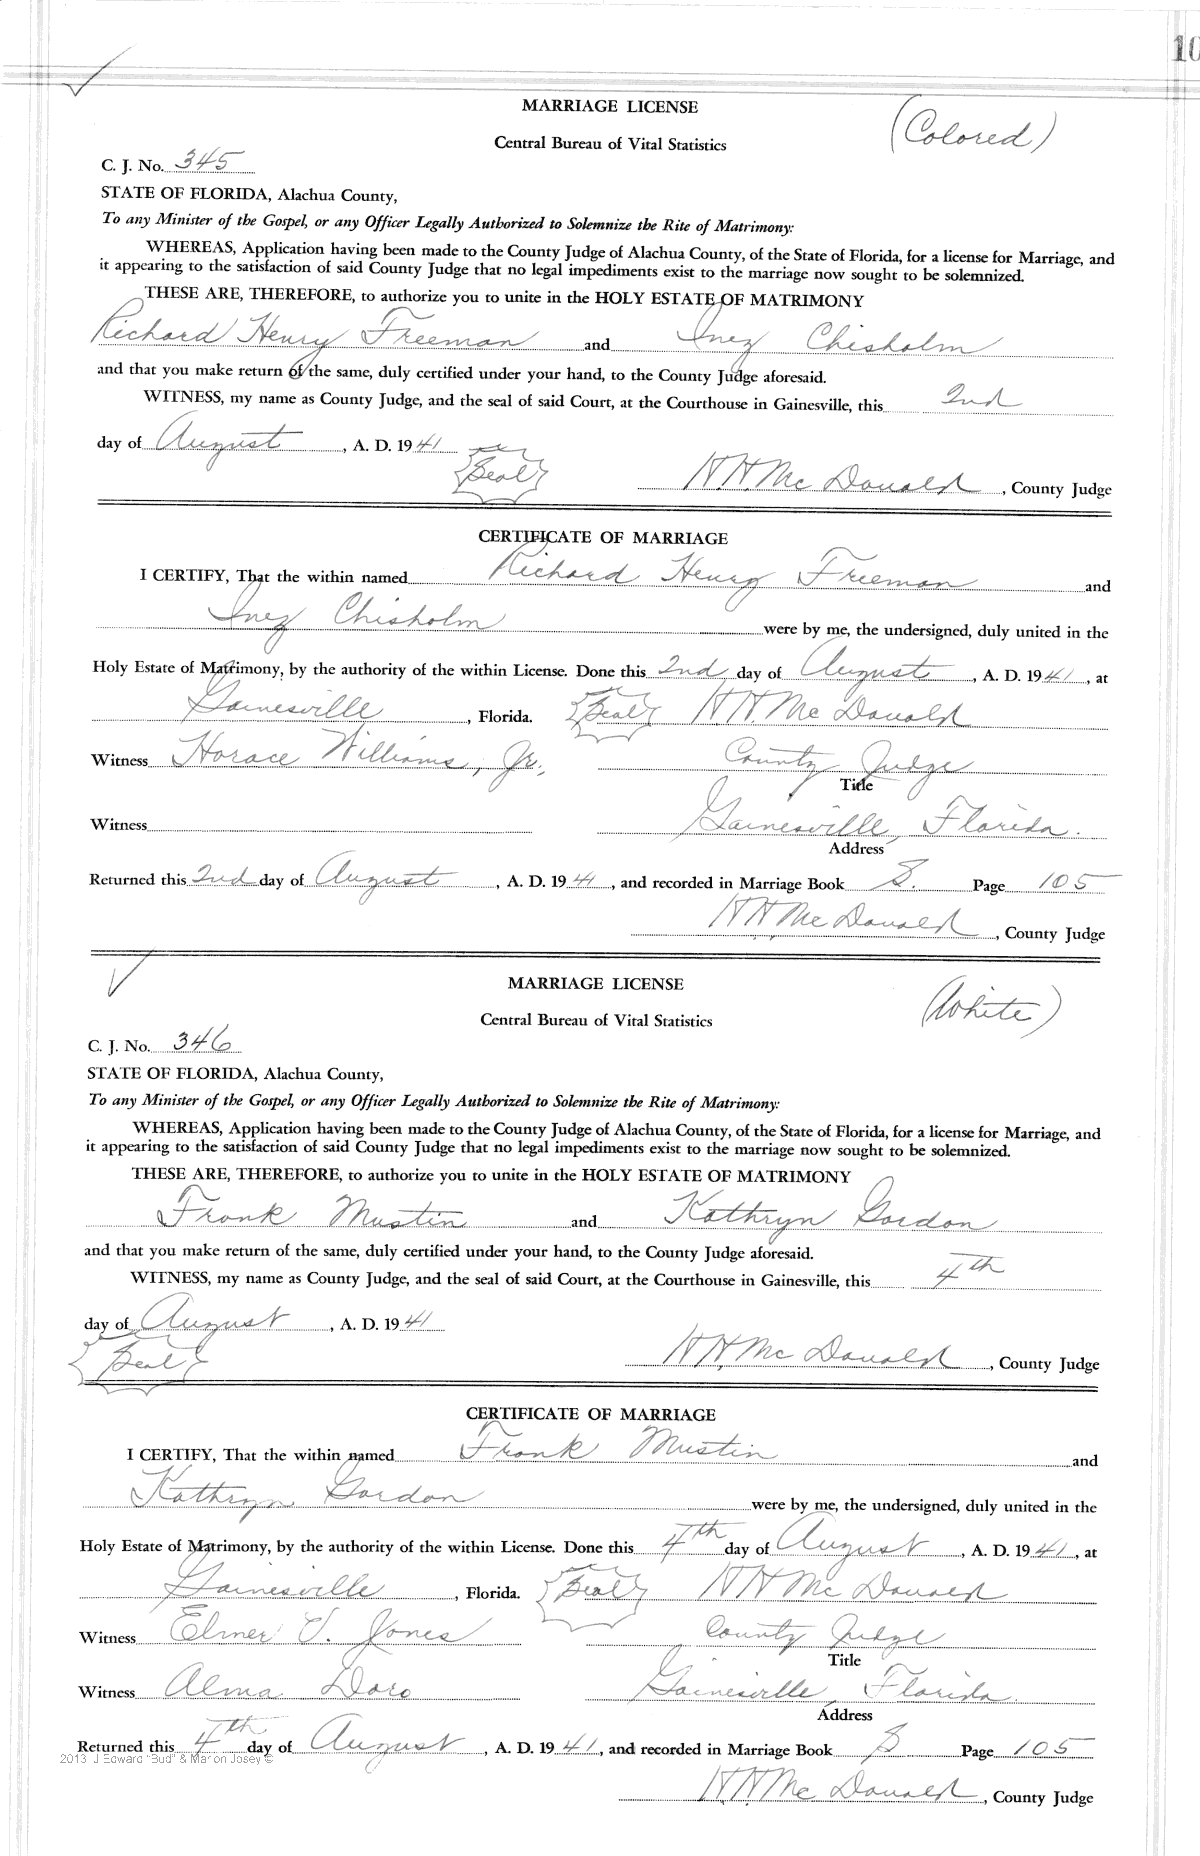 10
MARRIAGE LICENSE
(Colored)
Central Bureau of Vital Statistics
C. J. No. 345
STATE OF FLORIDA, Alachua County,
To any Minister of the Gospel, or any Officer Legally Authorized to Solemnize the Rite of Matrimony:
WHEREAS, Application having been made to the County Judge of Alachua County, of the State of Florida, for a license for Marriage, and
it appearing to the satisfaction of said County Judge that no legal impediments exist to the marriage now sought to be solemnized.
THESE ARE, THEREFORE, to authorize you to unite in the HOLY ESTATE OF MATRIMONY
Richard Henry Freeman and Inez Chisholm
and that you make return of the same, duly certified under your hand, to the County Judge aforesaid.
WITNESS, my name as County Judge, and the seal of said Court, at the Courthouse in Gainesville, this 2nd
day of August, A. D. 1941
Seal
H.H. McDonald, County Judge
CERTIFICATE OF MARRIAGE
I CERTIFY, That the within named Richard Henry Freeman and
Inez Chisholm were by me, the undersigned, duly united in the
Holy Estate of Matrimony, by the authority of the within License. Done this 2nd day of August, A. D. 1941, at
Gainesville, Florida. Seal H H McDonald
Witness Horace Williams, Jr., County Judge
Title
Witness Gainesville, Florida.
Address
Returned this 2nd day of August, A. D. 1941, and recorded in Marriage Book S. Page 105
H.H. McDonald, County Judge
MARRIAGE LICENSE
(White)
Central Bureau of Vital Statistics
C. J. No. 346
STATE OF FLORIDA, Alachua County,
To any Minister of the Gospel, or any Officer Legally Authorized to Solemnize the Rite of Matrimony:
WHEREAS, Application having been made to the County Judge of Alachua County, of the State of Florida, for a license for Marriage, and
it appearing to the satisfaction of said County Judge that no legal impediments exist to the marriage now sought to be solemnized.
THESE ARE, THEREFORE, to authorize you to unite in the HOLY ESTATE OF MATRIMONY
Frank Mustin and Kathryn Gordon
and that you make return of the same, duly certified under your hand, to the County Judge aforesaid.
WITNESS, my name as County Judge, and the seal of said Court, at the Courthouse in Gainesville, this 4th
day of August, A. D. 1941
Seal
H.H. McDonald, County Judge
CERTIFICATE OF MARRIAGE
I CERTIFY, That the within named Frank Mustin and
Kathryn Gordon were by me, the undersigned, duly united in the
Holy Estate of Matrimony, by the authority of the within License. Done this 4th day of August, A. D. 1941, at
Gainesville, Florida. Seal H H McDonald
Witness Elmer V. Jones County Judge
Title
Witness Alma Doro Gainesville, Florida.
Address
Returned this 4th day of August, A. D. 1941, and recorded in Marriage Book S Page 105
2013 J Edward "Bud" & Marion Josey ©
H.H. McDonald, County Judge